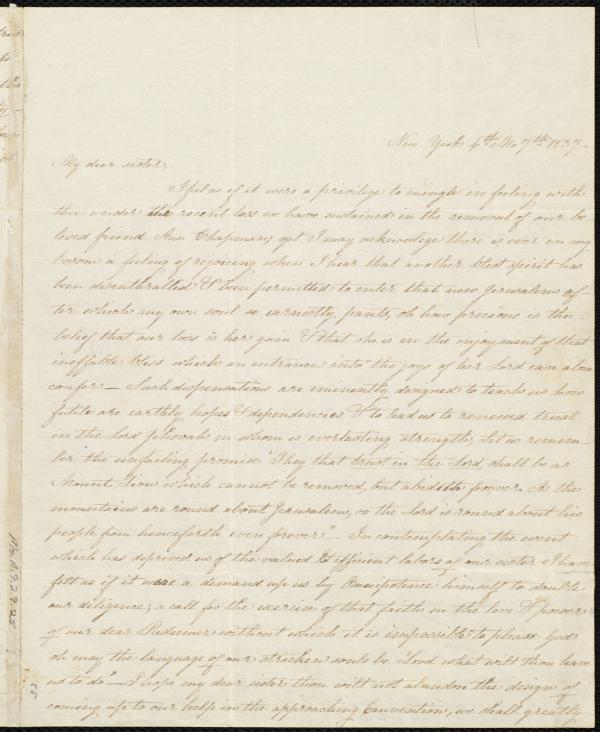 New York 4th Mo 7th 1837-
My dear sister,
I feel as if it were a privilege to mingle in feeling with
thee under the recent loss we have sustained in the removal of our be
loved friend Ann Chapman; yet I may acknowledge there is ever in my
bosom a feeling of rejoicing when I hear that another blest spirit has
been disenthralled & been permitted to enter that new Jerusalem af
ter which my own soul so earnestly pants, oh how precious is the
belief that our loss is her gain & that she is in the enjoyment of that
ineffable bliss which an entrance into the joys of her Lord can alone
confer— Such dispensations are eminently designed to teach us how
futile are earthly hopes & dependencies & to lead us to renewed trust
in the Lord Jehovah in whom is everlasting strength, Let us remem-
ber the unfailing promise "They that trust in the Lord, shall be as
Mount Zion which cannot be removed, but abideth forever. As the
mountains are round about Jerusalem, so the Lord is round about his
people from henceforth even forever"— In contemplating the event
which has deprived us of the valued & efficient labors of our sister I have
felt as if it were a demand up us by Omnipotence himself to double
our diligence; a call for the exercise of that faith in the love & power
of our dear Redeemer without which it is impossible to please God
oh may the language of our stricken souls be "Lord what wilt thou have
us to do"— I hope my dear sister thou wilt not abandon the design of
coming up to our help in the approaching Convention, we shall greatly